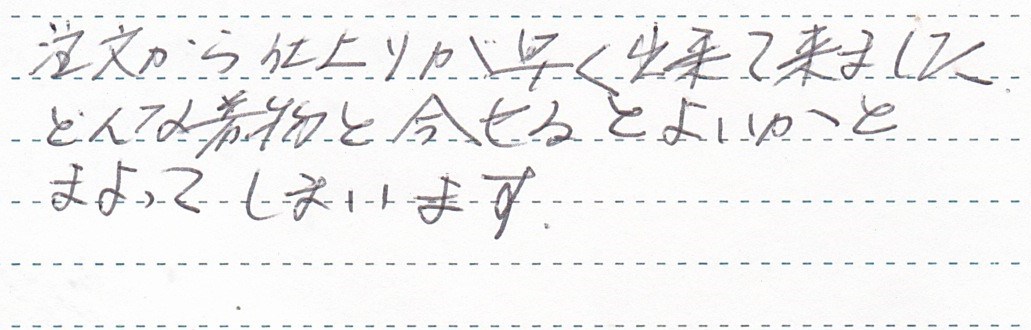 注文から仕上りが早く出来て来ました.
どんな着物と合せるとよいかと
まよってしまいます.